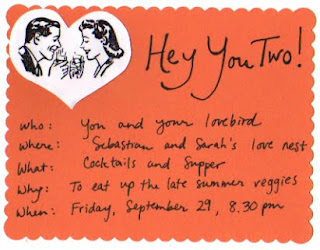 Hey You Two!
Who: You and your lovebird
Where: Sebastian and Sarah's love nest
What: Cocktails and Supper
Why: To eat up the late summer veggies
When: Friday, September 29, 8.30 pm